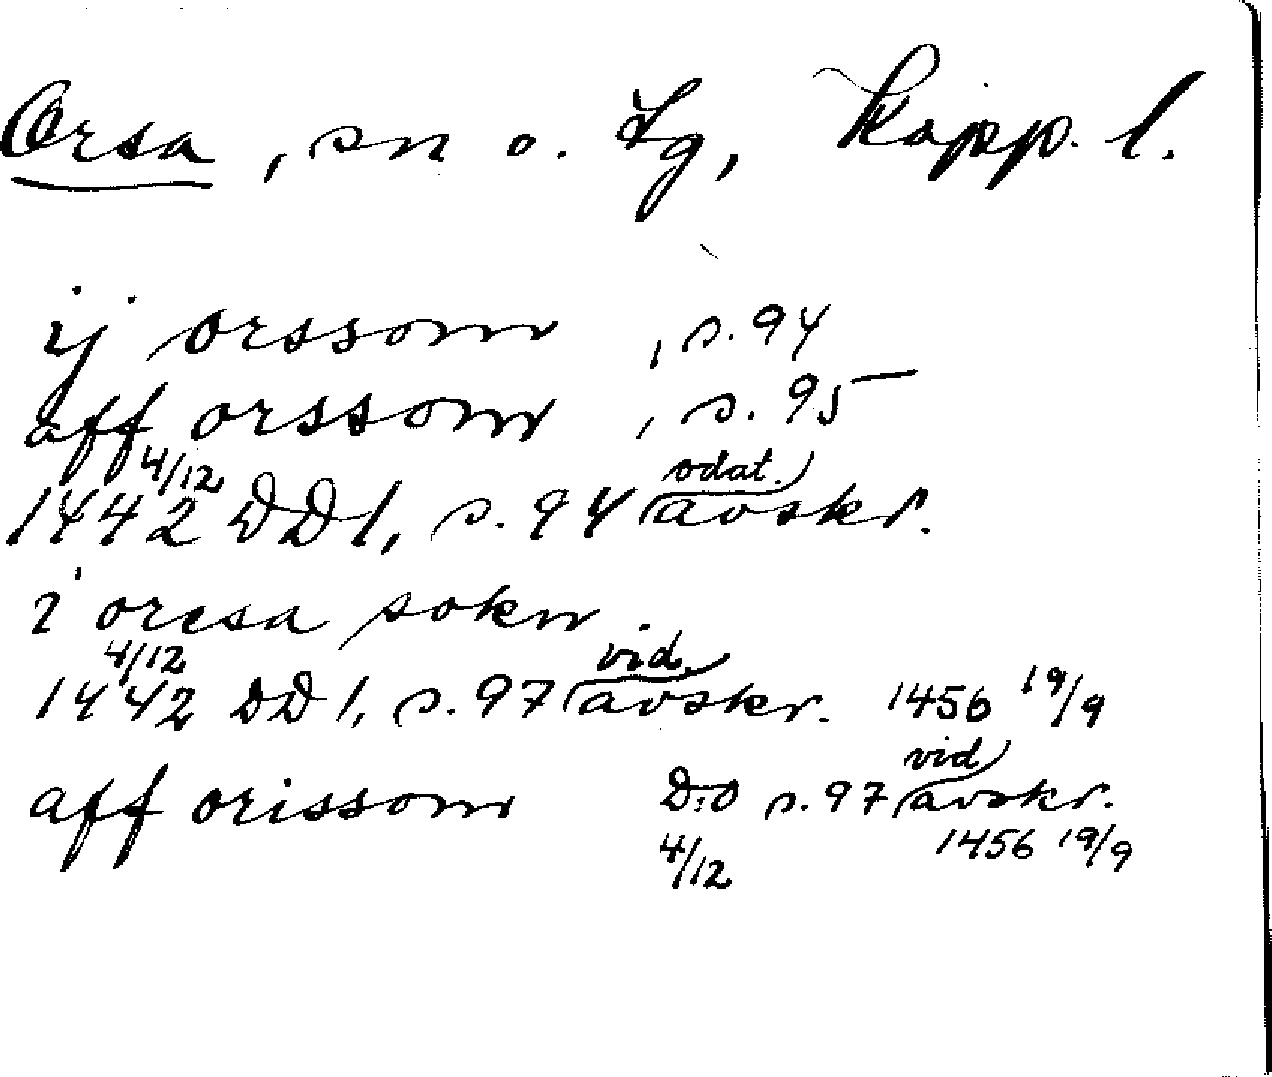 Orsa, sn o. tg, Kopp. l.
ij orssom, s. 94
aff orssom, s. 95
1442 4/12 DD 1, s. 94 (odat.) avskr.
i oresa sokn
1442 4/12 DD 1, s. 97 (vid.) avskr. 1456 19/9
aff orissom D:o s. 97 (vid) avskr.
4/12 1456 19/9